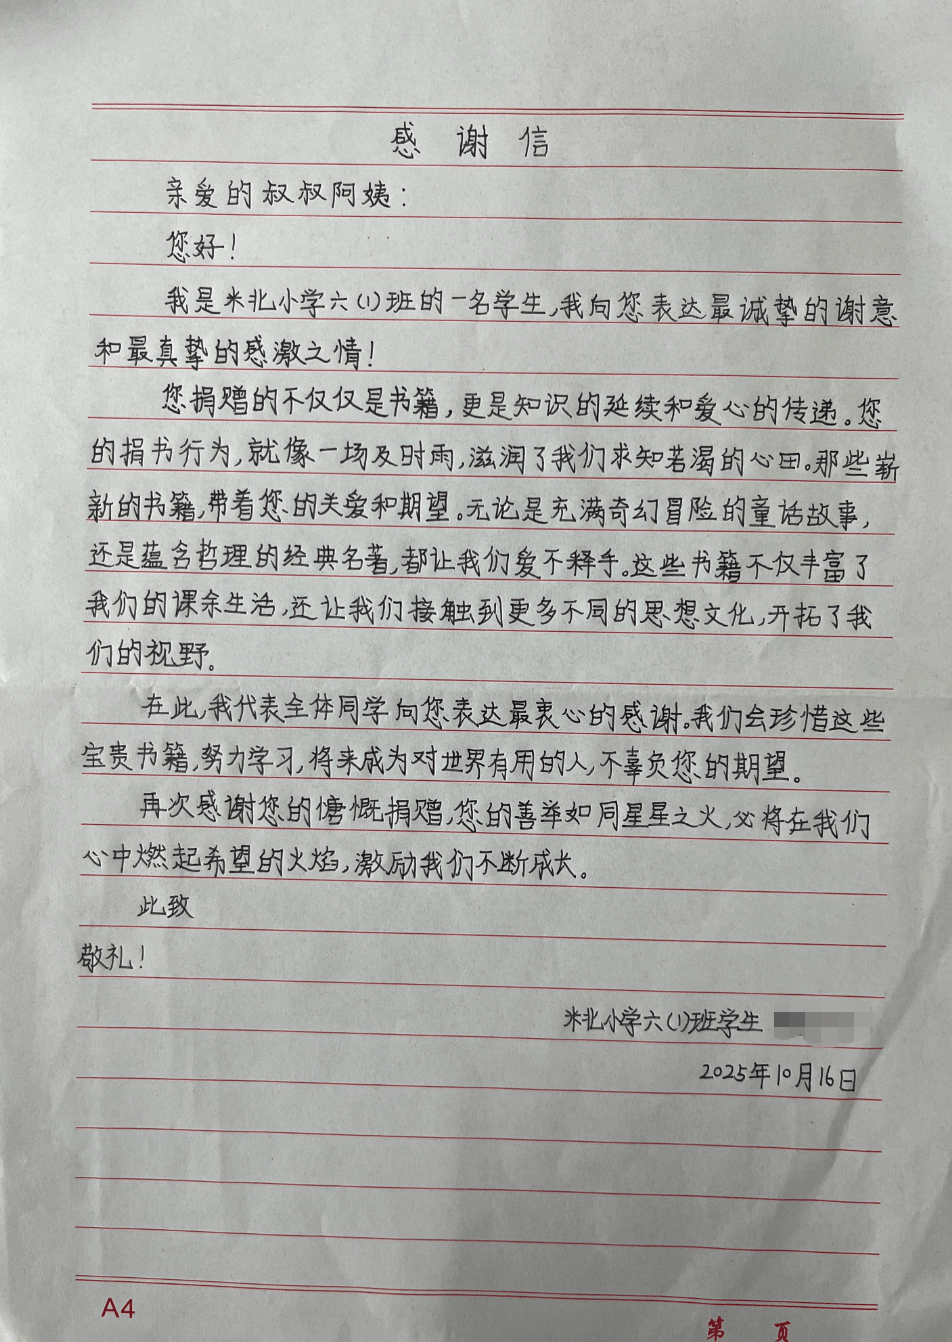 感谢信
亲爱的叔叔阿姨：
您好！
我是米北小学六(1)班的一名学生,我向您表达最诚挚的谢意
和最真挚的感激之情！
您捐赠的不仅仅是书籍,更是知识的延续和爱心的传递。您
的捐书行为,就像一场及时雨,滋润了我们求知若渴的心田。那些崭
新的书籍,带着您的关爱和期望。无论是充满奇幻冒险的童话故事,
还是蕴含哲理的经典名著,都让我们爱不释手。这些书籍不仅丰富了
我们的课余生活,还让我们接触到更多不同的思想文化,开拓了我
们的视野。
在此,我代表全体同学向您表达最衷心的感谢。我们会珍惜这些
宝贵书籍,努力学习,将来成为对世界有用的人,不辜负您的期望。
再次感谢您的慷慨捐赠,您的善举如同星星之火,必将在我们
心中燃起希望的火焰,激励我们不断成长。
此致
敬礼！
米北小学六(1)班学生
2025年10月16日
A4
第 页